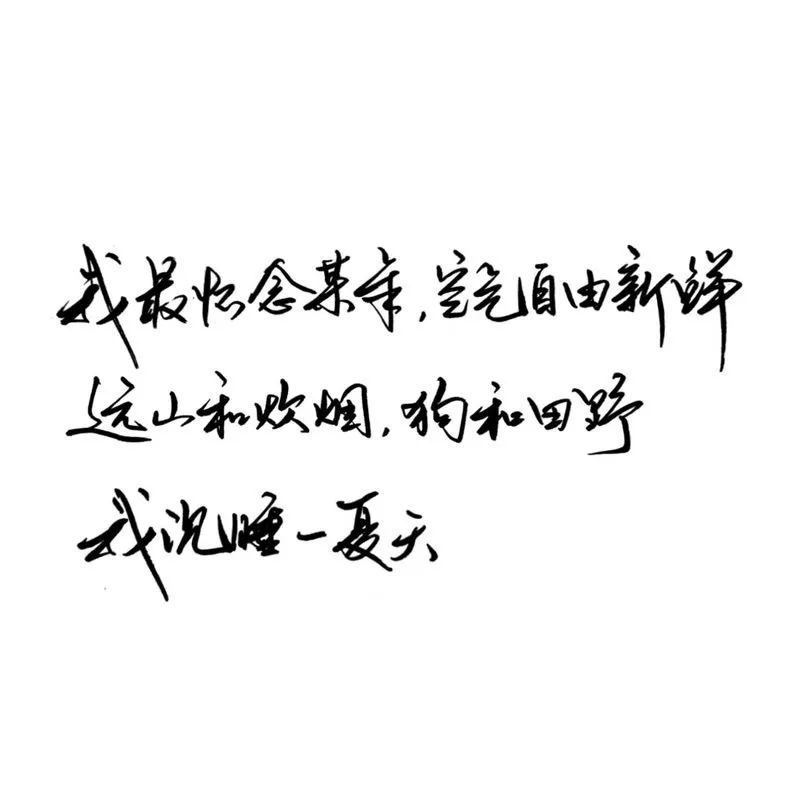 我最怀念某年,空气自由新鲜
远山和炊烟,狗和田野
我沉睡一夏天